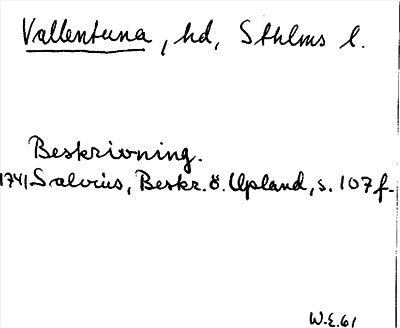 Vallentuna, hd, Sthlms l.
Beskrivning.
1741 Salvius, Beskr. ö. Upland, s. 107 f.
W.E. 61